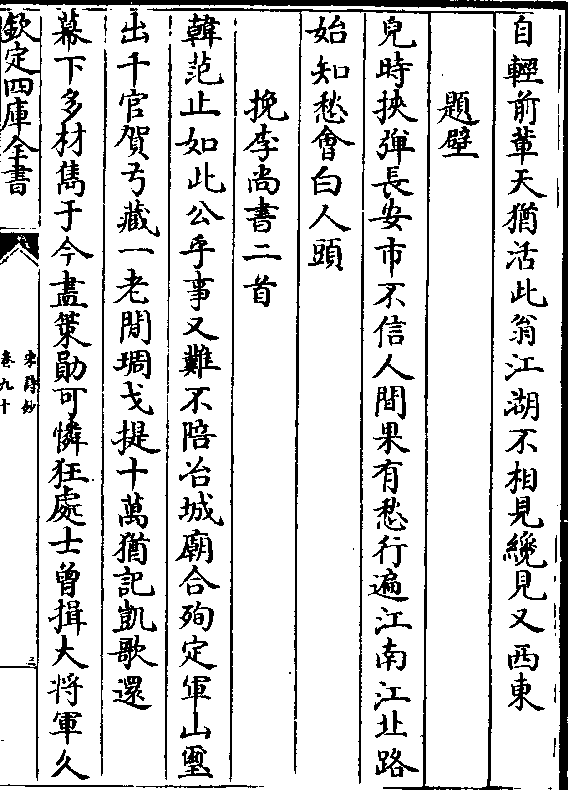 自輕前輩天猶活此翁江湖不相見纔見又西東
題壁
兒時挾彈長安市不信人間果有愁行遍江南江北路
始知愁會白人頭
挽李尚書二首
韓范止如此公乎事又難不陪冶城廟合殉定軍山璽
出千官賀弓藏一老閒琱戈提十萬猶記凱歌還
幕下多材雋于今盡策勛可憐狂處士曾揖大將軍久
欽定四庫全書
宋詩鈔
卷九十
三